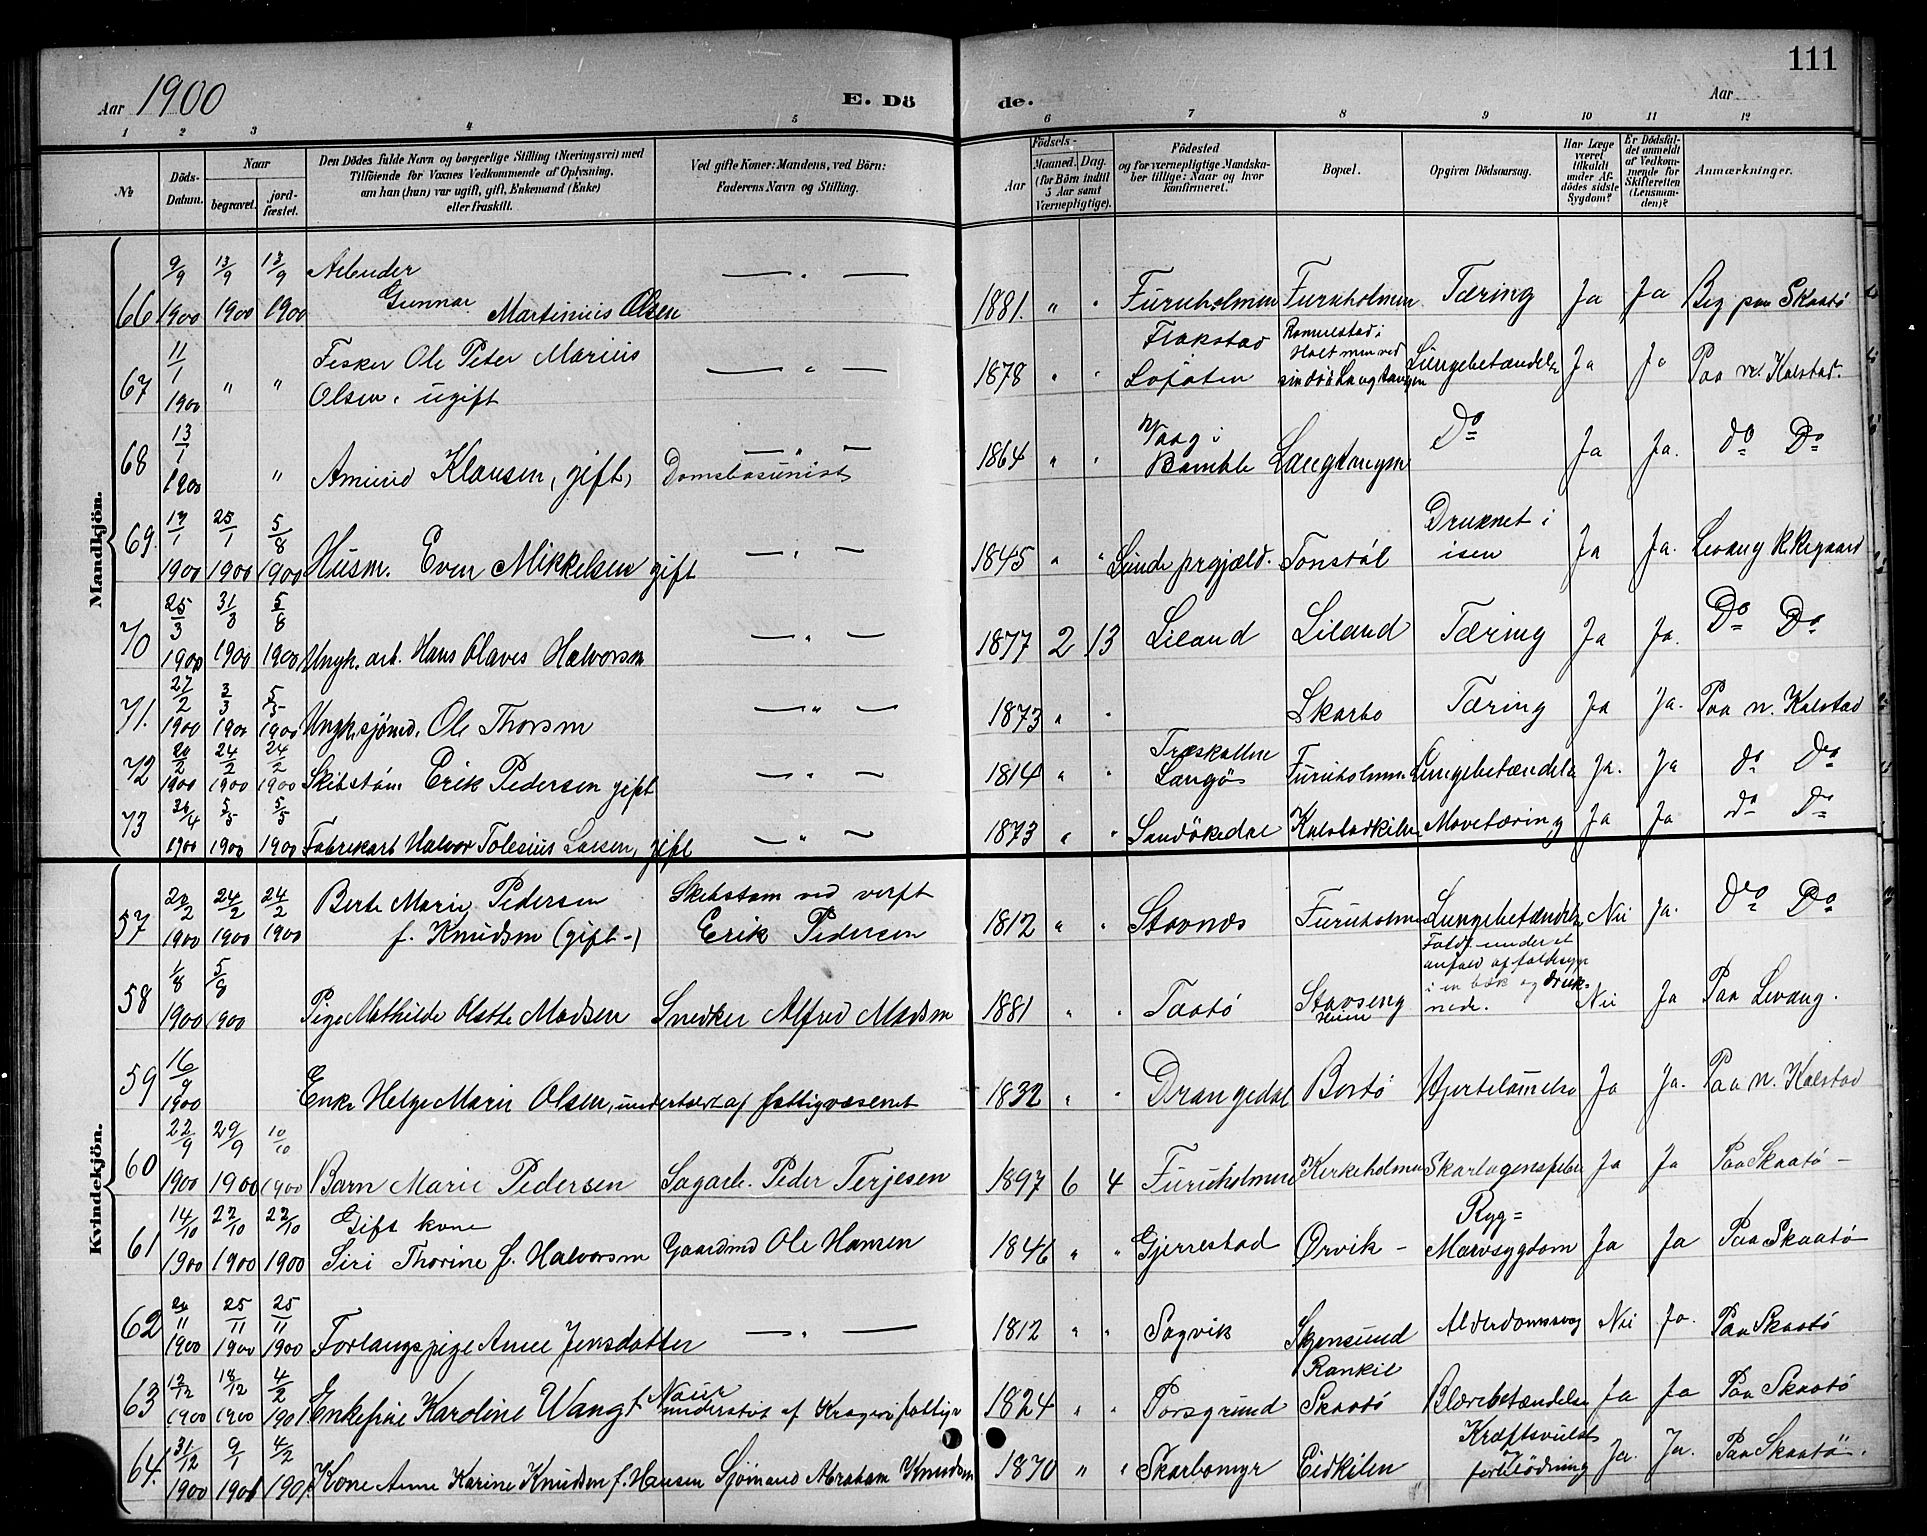 111
Aar 1900 E. Dö de. Aar
1 2 3 4 5 6 7 8 9 10 11 12
№
Döds-Datum.
Naar
begravet.
jord-fæstet.
Den Dödes fulde Navn og borgerlige Stilling (Næringsvei) med
Tilföiende for Voxnes Vedkommende af Oplysning,
om han (hun) var ugift, gift, Enkemand (Enke)
eller fraskilt.
Ved gifte Koner: Mandens, ved Börn:
Faderens Navn og Stilling.
Födsels-
Aar
Maaned. Dag.
(for Börn indtil
5 Aar samt
Værnepligtige).
Födested
og for værnepligtige Mandska-
ber tillige: Naar og hvor
konfirmeret.
Bopæl.
Opgiven Dödsaarsag.
Har Læge
været
tilkaldt
under Af-
dödes sidste
Sygdom?
Er Dödsfal-
det anmeldt
af Vedkom-
mende for
Skifteretten
(Lensman-
den)?
Anmærkninger.
Mandkjön.
66 9/9 1900 13/9 1900 13/9 1900 Arbeider Gunnar Martinius Olsen — " — 1881. " " Furuholmen Furuholmen Tæring Ja Ja Beg paa Skaatö
67 11/1 1900 " " Fisker Ole Peter Marius Olsen, ugift — " — 1878 " " Flakstad Lofoten Lungebetændelse Ja Ja Paa n. Kalstad.
68 13/1 1900 " Amund Klausen, gift, — " — 1864 " " Vaag i Bamble Langtangen Do Ja Ja. do Do
69. 17/1 1900 25/1 1900 5/8 1900 Husm. Even Mikkelsen gift — " — 1845 " " Lunde prgjæld. Tonstöl Druknet i isen Ja Ja. Levang Kkegaard
70 25/3 1900 31/3 1900 5/8 1900 Ungk. arb. Hans Olaves Halvorsen — " — 1877 2 13 Liland Liland Tæring Ja Ja. Do Do
71. 27/2 1900 3/3 1900 5/5 1900 Ungk. sjömd. Ole Thorsen — " — 1873 " " Skarbo Tæring Ja Ja. Paa n. Kalstad
72 20/2 1900 24/2 1900 24/2 1900 Skibstöm. Erik Pedersen gift — " — 1814 " " Træskallen Langö Furuholmen Lungebetændelse Ja. Ja do Do
73 30/4 1900 5/5 1900 5/5 1900 Fabrikarb Halvor Tolesius Larsen, gift — " — 1873 " " Sandökedal Kalstadkilen Mavetæring Ja Ja do Do
Kvindekjön.
57 20/2 1900 24/2 1900 24/2 1900 Berte Marie Pedersen f. Knudsen (gift-) Skibstöm ved verft Erik Pedersen 1812 " " Stavnæs Furuholmen Lungebetændelse Nei Ja. Do Do
58 1/8 1900 5/8 1900 Pige Mathilde Olette Madsen Snedker Alfred Madsen 1881 " " Taatö Stavseng Faldt under et anfald af faldesyge i en bæk og druknede. Nei Ja Paa Levang.
59 16/9 1900 Enke Helge Marie Olsen, understøt af fattigvæsenet 1832 " " Drangedal Bostö Hjertelammelse Ja Ja. Paa n. Kalstad
60 22/9 1900 29/9 1900 10/10 1900 Barn Marie Pedersen Sagarb. Peder Terjesen 1897 6 4 Furuholmen Kirkeholmen Skarlagensfeber Ja Ja Paa Skaatö -
61 14/10 1900 22/10 1900 22/10 1900 Gift kone Siri Thorine f. Halvorsen Gaardmd Ole Hansen 1846 " " Gjerrestad Ørvik - Ryg= Marvsygdom Ja Ja Paa Skaatö
62 20/11 1900 25/11 1900 25/11 1900 Forlangspige Anne Jensdatter — " — 1812 " " Sagvik Skjensund Alderdomssvag Nei Ja. Paa Skaatö
63 12/12 1900 18/12 1900 4/2 1901 Enkefrue Karoline Wangt understöt af Kragerø fattigv 1824 " " Porsgrund Rankil Skaatö Blærebetændelse Ja Ja Paa Skaatö
64. 31/12 1900 9/1 1901 4/2 1901 Kone Anne Karine Knudsen f. Hansen Sjömand Abraham Knudsen 1870 " " Skarbomyr Eidkilen Kræftsvulst forblödning Ja. Ja. Paa Skaatö.